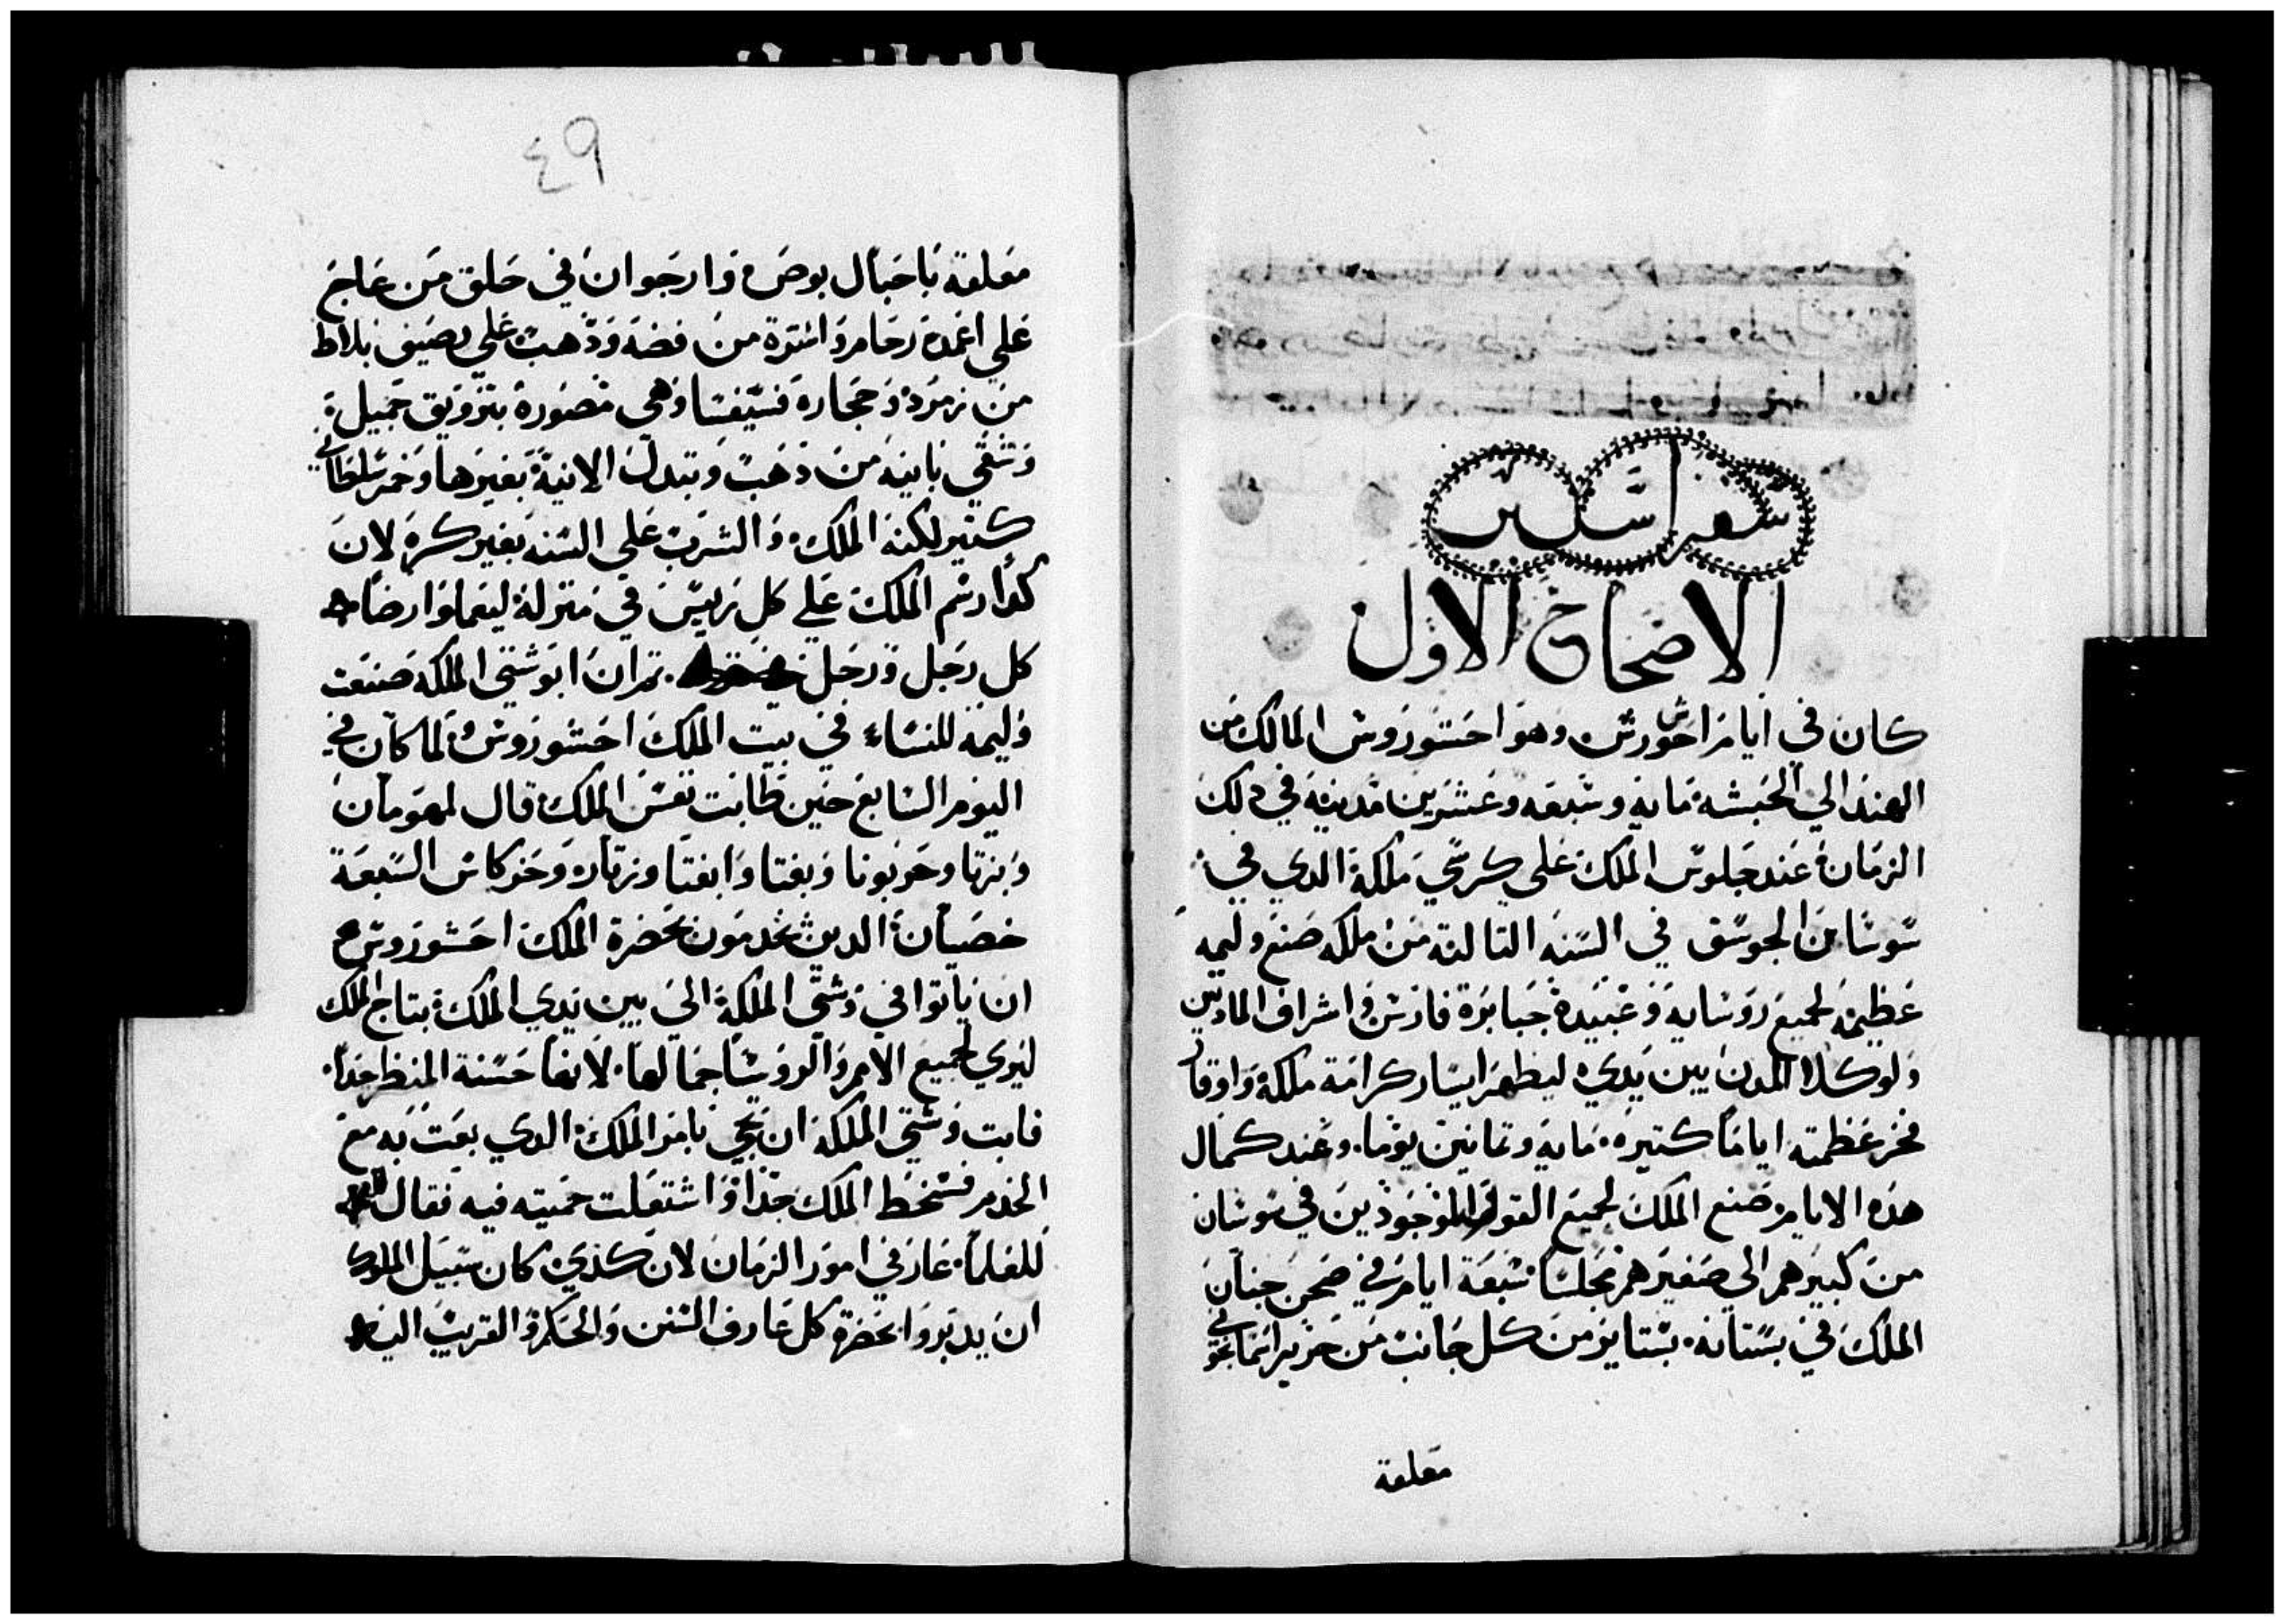 سفر استير
الاصحاح الاول
كان في ايام احشورش وهو احشوروش المالك من
الهند الي الحبشه مايه وسبعه وعشرين مدينة في دلك
الزمان عند جلوس الملك علي كرسي ملكه الدي في
سوسان الجوسق في السنه التالته من ملكه صنع وليمه
عظيمه لجميع روسايه وعبيده جبابرة فارس واشراف المادين
ولوكلا المدن بين يديه ليظهر ايسار كرامة ملكه واوقار
فخر عظمته اياما كتيره مايه وتمانين يوما وعند كمال
هده الايام صنع الملك لجميع القوم الموجودين في سوسان
من كبيرهم الي صغيرهم مجلسا سبعة ايام في صحن جنان
الملك في بستانه بستاير من كل جانب من حرير
معلقة
٤٩
معلقه باحبال بوص وارجوان في حلق من عاج
علي اعمدة رخام واسرة من فضه ودهب علي رصيف بلاط
من زمرد وحجارة فسيفسا وهي مصورة بتزويق جميل
وتسقي بانيه من دهب وتبدل الانية بغيرها وخمر سلطاني
كتير لكنه الملك والشرب علي السنه بغير كره لان
كدا رسم الملك علي كل رييس في منزله ليعملوا رضا
كل رجل ورجل تم ان ابوشتي الملكه صنعت
وليمه للنساء في بيت الملك احشوروش ولما كان في
اليوم السابع حين طابت نفس الملك قال لمهومان
وبزتا وحربونا وبغتا وابغتا وزتار وخركاس السبعة
خصيان الدين يخدمون بحضرة الملك احشوروش
ان ياتوا في وشتي الملكة الي بين يدي الملك بتاج الملك
ليري لجميع الامم والروسا جمالها لانها حسنة المنظر جدا
فابت وشتي الملكه ان تجي بامر الملك الدي بعت به مع
الخدم فسخط الملك جدا واشتعلت حميته فيه فقال
للعلما عارفي امور الزمان لان كذي كان سبيل الملوك
ان يدبروا بحضرة كل عارف السنن والحكم والقريب اليه